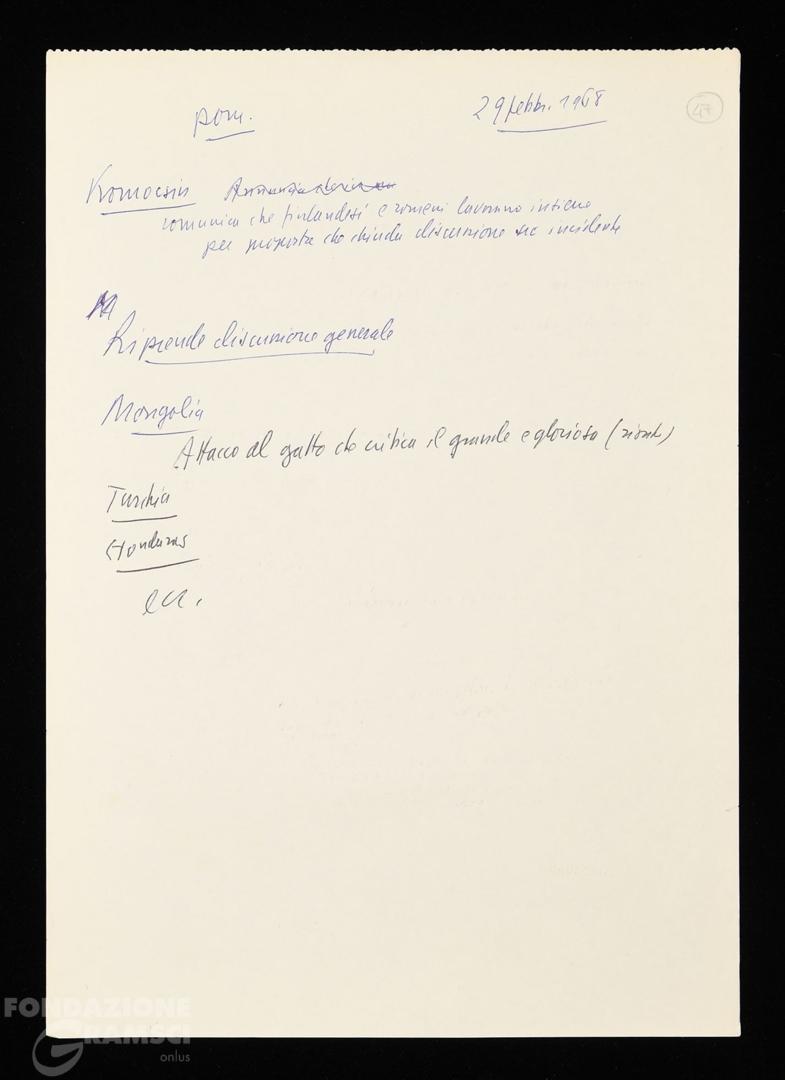 pom.
29 febbr. 1968
47
Komocsin
comunica che finlandesi e romeni lavorano insieme
per proposta che chiuda discussione su incidente
Riprende discussione generale
Mongolia
Attacco al gatto che critica il grande e glorioso
Turchia
Honduras
ecc.
FONDAZIONE
GRAMSCI
onlus